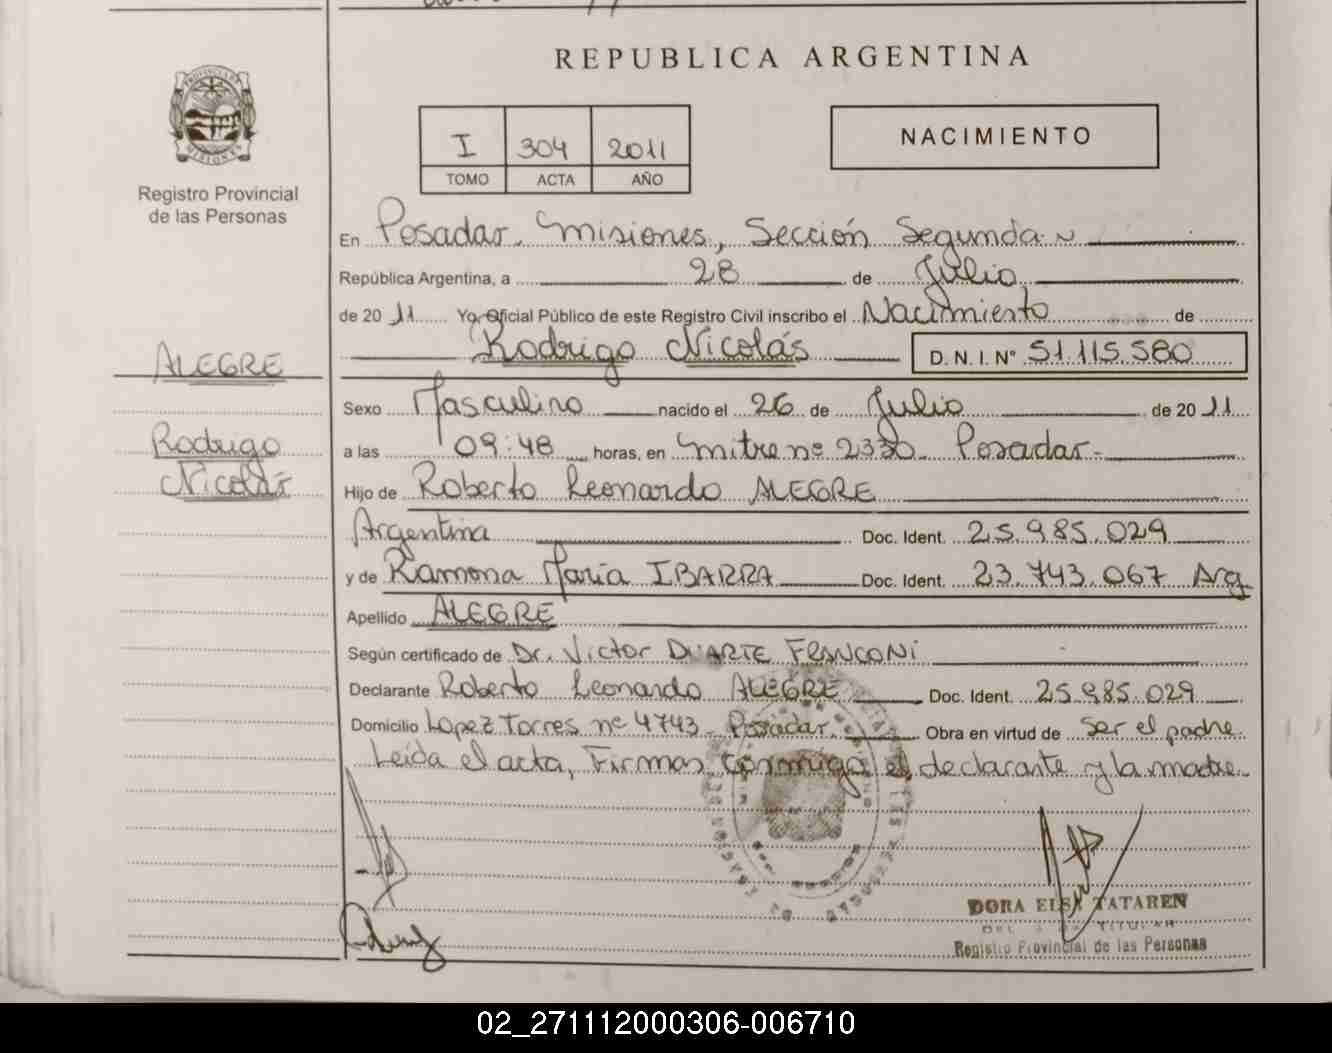 REPUBLICA ARGENTINA
I 304 2011
TOMO ACTA AÑO
NACIMIENTO
Registro Provincial
de las Personas
En Posadas. Misiones, Sección Segunda
República Argentina, a 28 de Julio
de 2011 Yo, Oficial Público de este Registro Civil inscribo el Nacimiento de
Rodrigo Nicolás D.N.I. Nº 51.115.580
ALEGRE
Rodrigo
Nicolás
Sexo Masculino nacido el 26 de Julio de 2011
a las 09:48 horas, en mitre nº 2330 Posadas-
Hijo de Roberto Leonardo ALEGRE
Argentina Doc. Ident. 25.985.029
y de Ramona María IBARRA Doc. Ident. 23.743.067 Arg
Apellido ALEGRE
Según certificado de Dr. Victor DUARTE FRANCONI
Declarante Roberto Leonardo ALEGRE Doc. Ident. 25.985.029
Domicilio Lopez Torres nº 4743 Posadas. Obra en virtud de ser el padre.
Leída el acta, Firman conmigo el declarante y la madre.
DORA ELSA TATAREN
TITULAR
Registro Provincial de las Personas
02_271112000306-006710